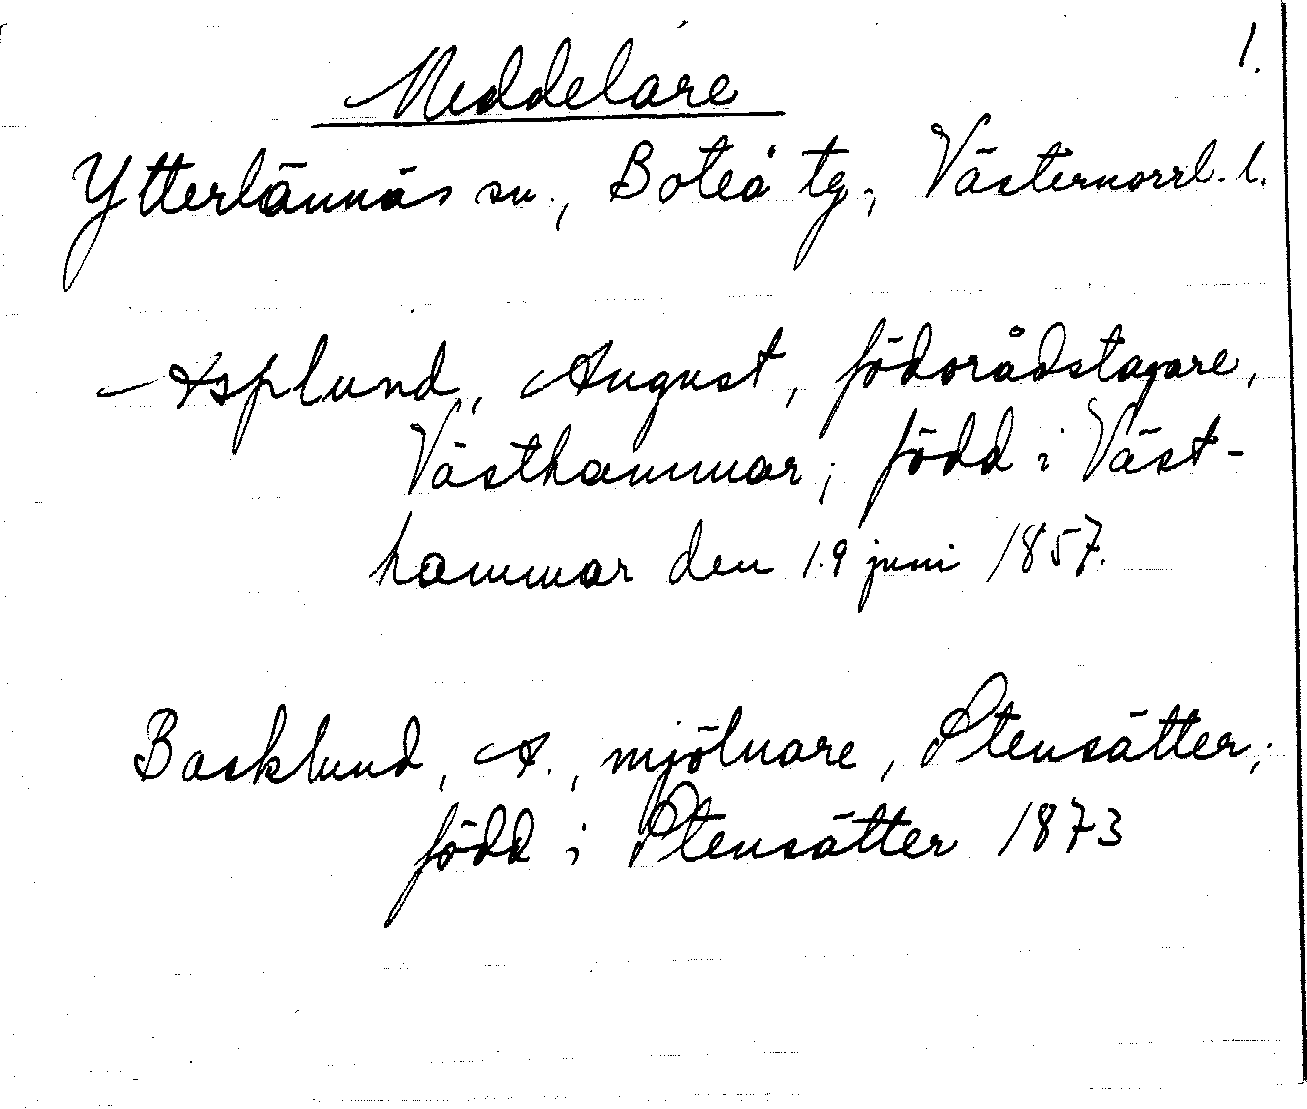 1.
Meddelare
Ytterlännäs sn., Boteå tg., Västernorrl. l.
Asplund, August, födorådstagare,
Västhammar; född i Väst-
hammar den 19 juni 1857.
Basklund, A., mjölnare, Stensätter;
född i Stensätter 1873